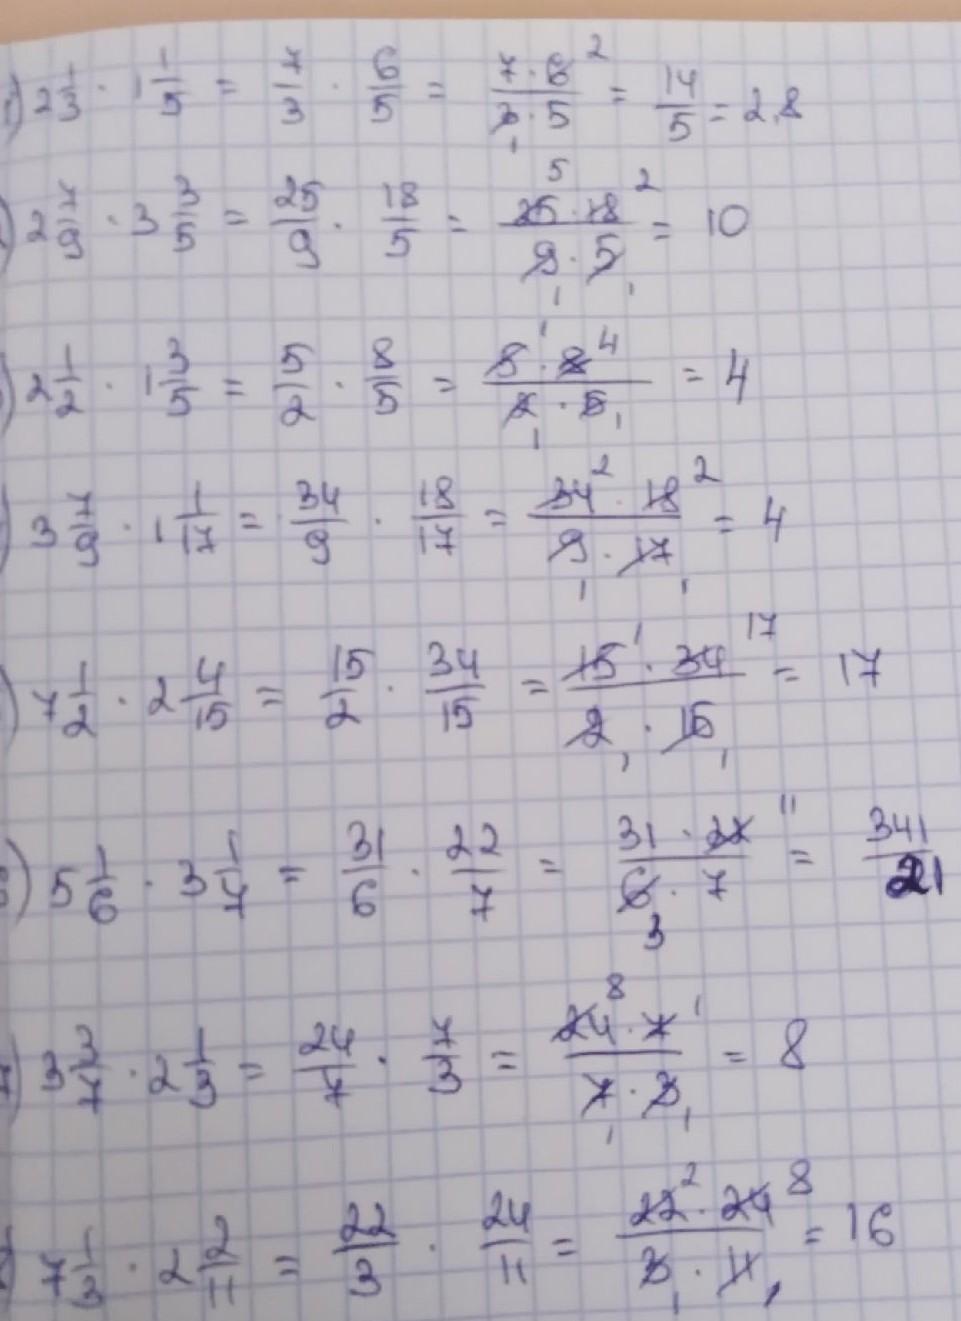 1) 2 1/3 · 1 1/5 = 7/3 · 6/5 = 7·6 2/3·5 1 = 14/5 = 2,8
) 2 7/9 · 3 3/5 = 25/9 · 18/5 = 5 25·18 2/9·5 1 1 = 10
) 2 1/2 · 1 3/5 = 5/2 · 8/5 = 5 1·8 4/2·5 1 1 = 4
) 3 7/9 · 1 1/17 = 34/9 · 18/17 = 34 2·18 2/9·17 1 1 = 4
) 7 1/2 · 2 4/15 = 15/2 · 34/15 = 15 1·34 17/2·15 1 1 = 17
6) 5 1/6 · 3 1/7 = 31/6 · 22/7 = 31·22 11/6·7 3 = 341/21
7) 3 3/7 · 2 1/3 = 24/7 · 7/3 = 24 8·7 1/7·3 1 1 = 8
8) 7 1/3 · 2 2/11 = 22/3 · 24/11 = 22 2·24 8/3·11 1 1 = 16